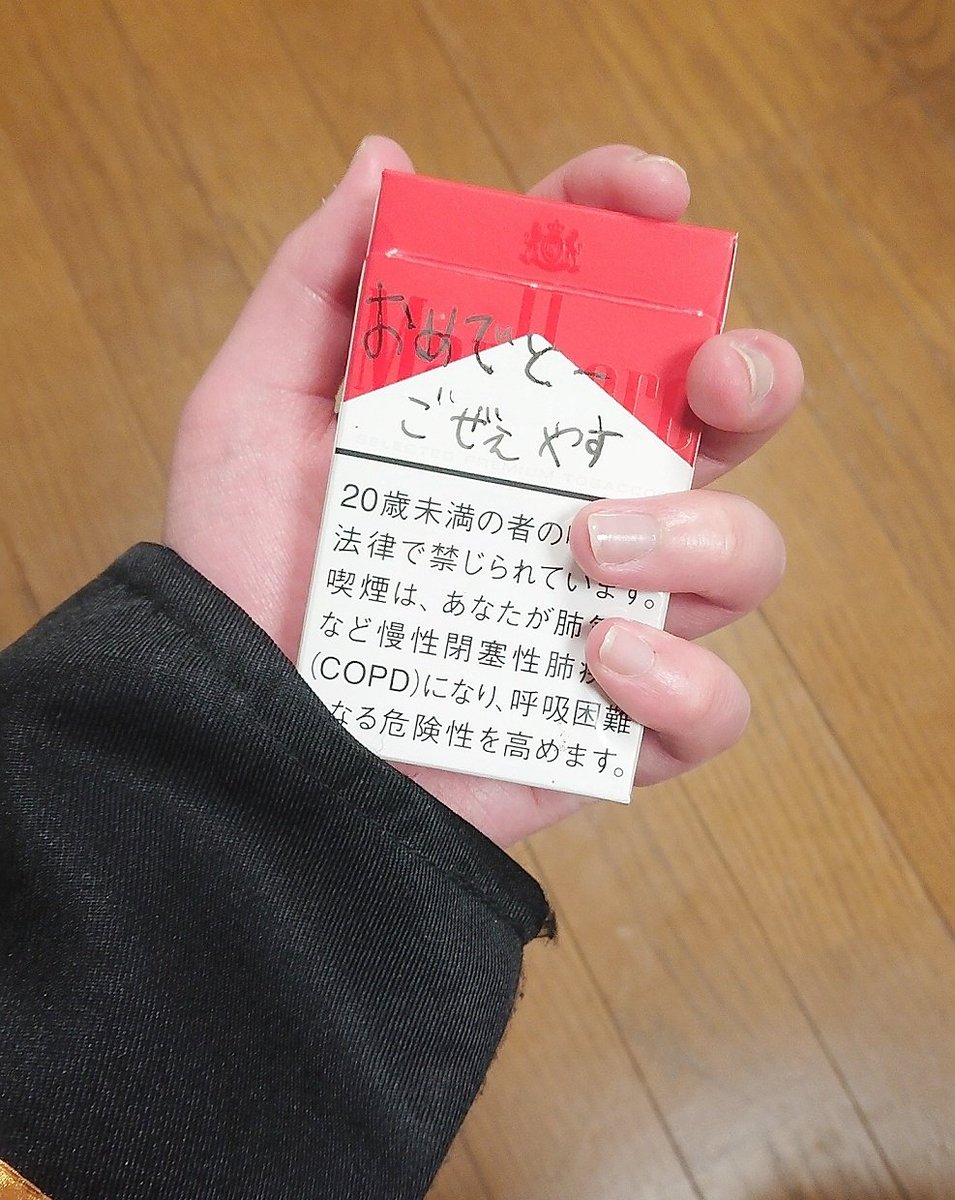 おめでとー
ごぜえやす
SELECTED PREMIUM TOBACCO
20歳未満の者の
法律で禁じられています。
喫煙は、あなたが肺気
など慢性閉塞性肺疾
(COPD)になり、呼吸困難
なる危険性を高めます。